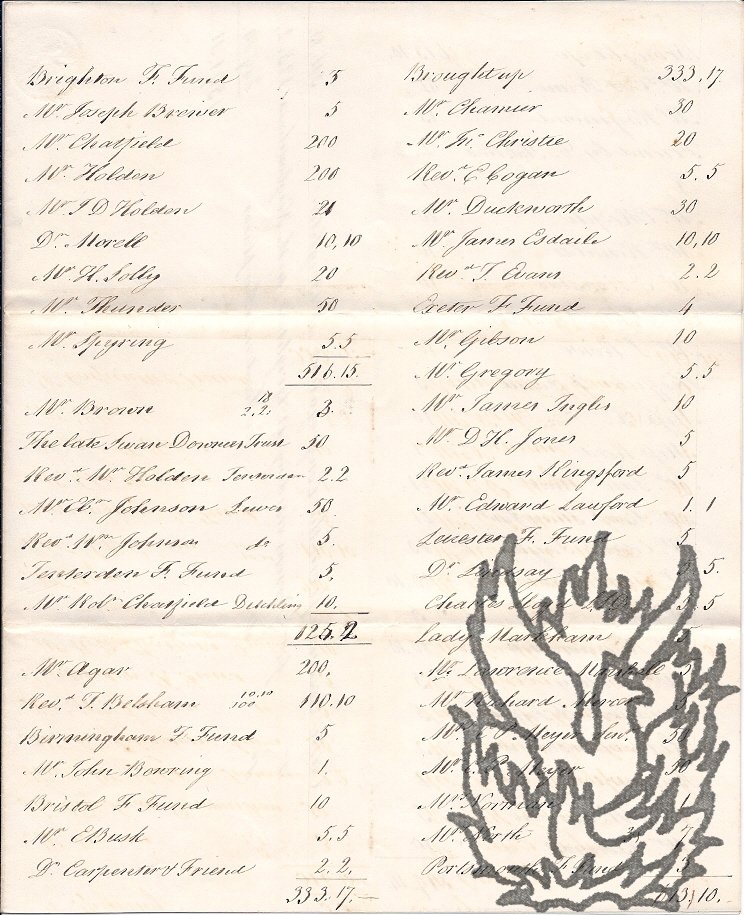 Brighton F. Fund 5
Mr. Joseph Brewer 5
Mr. Chatfield 200
Mr. Holden 200
Mr. J D Holden 21
Dr. Morell 10,10
Mr. H. Solly 20
Mr. Thunder 50
Mr. Spyring 5.5
516.15.
Mr. Brown 2.2. 18 3.
The late Swan Downer Trust 50
Revd. Wm. Holden Tenterden 2.2
Mr. Ebr. Johnson Lewes 50
Revd. Wm. Johnson do 5.
Tenterden F. Fund 5.
Mr. Robt. Chatfield Ditchling 10.
125.2
Mr. Agar 200,
Revd. T. Belsham 10.10 100 110.10
Birmingham F Fund 5
Mr. John Bowring 1.
Bristol F Fund 10
Mr. E Busk 5.5
Dr. Carpenter & Friend 2.2.
333.17.—
Brought up 333.17
Mr. Chamier 30
Mr. Jno. Christie 20
Revd. E Cogan 5.5
Mr. Duckworth 30
Mr. James Esdaile 10,10
Revd. T. Evans 2.2
Exeter F Fund 4
Mr. Gibson 10
Mr. Gregory 5.5
Mr. James Inglis 10
Mr. D H. Jones 5
Revd. James Kingsford 5
Mr. Edward Lauford 1.1
Leicester F. Fund 5
Dr. Lindsay 5.
Charles 5.5
Lady Markham 5
Mr. Lawrence 5
Mr. Richard 5
Mr. Meyer
Mr. Meyer 50
Mr. Norman 1
Mr. North 7
Portsmouth F Fund 3
10.